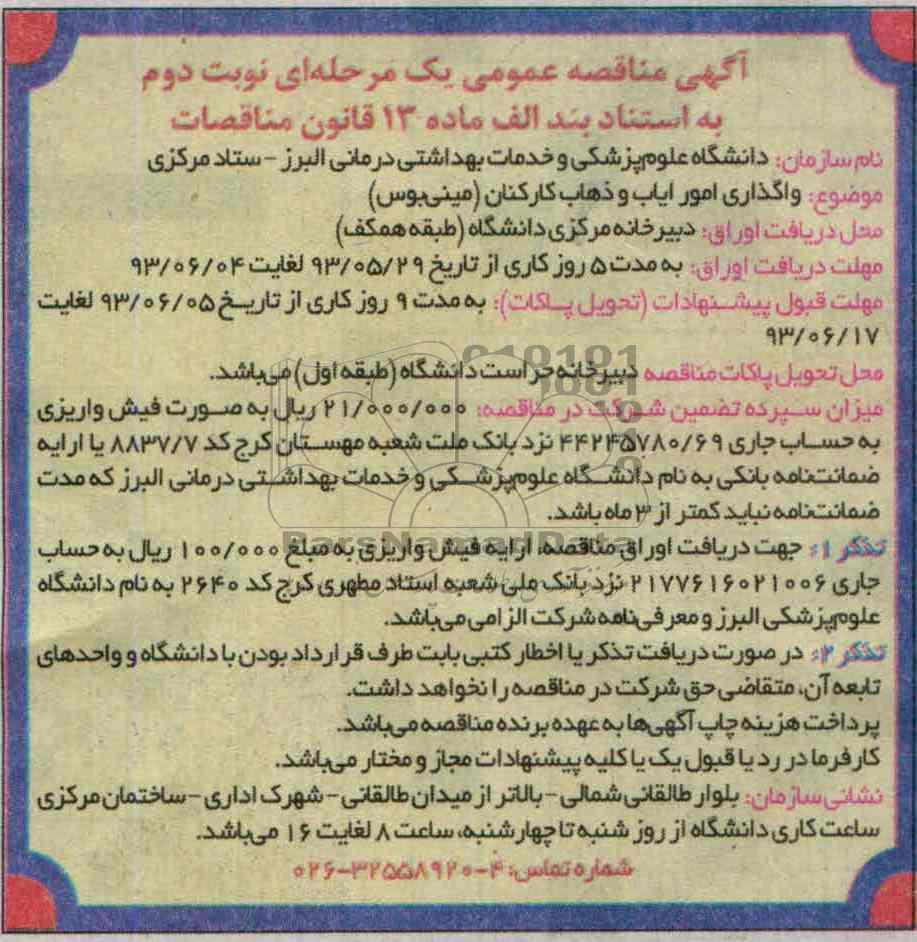 آگهی مناقصه عمومی یک مرحله‌ای نوبت دوم
به استناد بند الف ماده ۱۳ قانون مناقصات
نام سازمان: دانشگاه علوم‌پزشکی و خدمات بهداشتی درمانی البرز - ستاد مرکزی
موضوع: واگذاری امور ایاب و ذهاب کارکنان (مینی‌بوس)
محل دریافت اوراق: دبیرخانه مرکزی دانشگاه (طبقه همکف)
مهلت دریافت اوراق: به مدت ۵ روز کاری از تاریخ ۹۳/۰۵/۲۹ لغایت ۹۳/۰۶/۰۴
مهلت قبول پیشنهادات (تحویل پاکات): به مدت ۹ روز کاری از تاریخ ۹۳/۰۶/۰۵ لغایت
۹۳/۰۶/۱۷
محل تحویل پاکات مناقصه دبیرخانه حراست دانشگاه (طبقه اول) می‌باشد.
میزان سپرده تضمین شرکت در مناقصه: ۲۱/۰۰۰/۰۰۰ ریال به صورت فیش واریزی
به حساب جاری ۴۴۲۴۵۷۸۰/۶۹ نزد بانک ملت شعبه مهستان کرج کد ۸۸۳۷/۷ یا ارایه
ضمانت‌نامه بانکی به نام دانشگاه علوم‌پزشکی و خدمات بهداشتی درمانی البرز که مدت
ضمانت‌نامه نباید کمتر از ۳ ماه باشد.
ParsNamadData
تذکر ۱: جهت دریافت اوراق مناقصه، ارایه فیش واریزی به مبلغ ۱۰۰/۰۰۰ ریال به حساب
جاری ۲۱۷۷۶۱۶۰۲۱۰۰۶ نزد بانک ملی شعبه استاد مطهری کرج کد ۲۶۴۰ به نام دانشگاه
علوم‌پزشکی البرز و معرفی‌نامه شرکت الزامی می‌باشد.
تذکر ۲: در صورت دریافت تذکر یا اخطار کتبی بابت طرف قرارداد بودن با دانشگاه و واحدهای
تابعه آن، متقاضی حق شرکت در مناقصه را نخواهد داشت.
پرداخت هزینه چاپ آگهی‌ها به عهده برنده مناقصه می‌باشد.
کارفرما در رد یا قبول یک یا کلیه پیشنهادات مجاز و مختار می‌باشد.
نشانی سازمان: بلوار طالقانی شمالی - بالاتر از میدان طالقانی - شهرک اداری - ساختمان مرکزی
ساعت کاری دانشگاه از روز شنبه تا چهارشنبه، ساعت ۸ لغایت ۱۶ می‌باشد.
شماره تماس: ۴-۳۲۵۵۸۹۲۰-۰۲۶